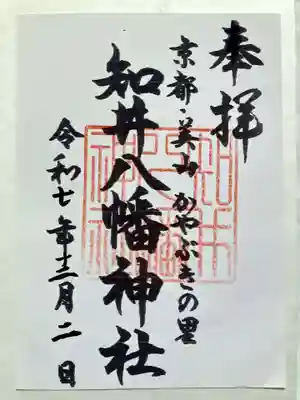 奉拝
京都・美山かやぶきの里
知井八幡神社
令和七年十二月二日